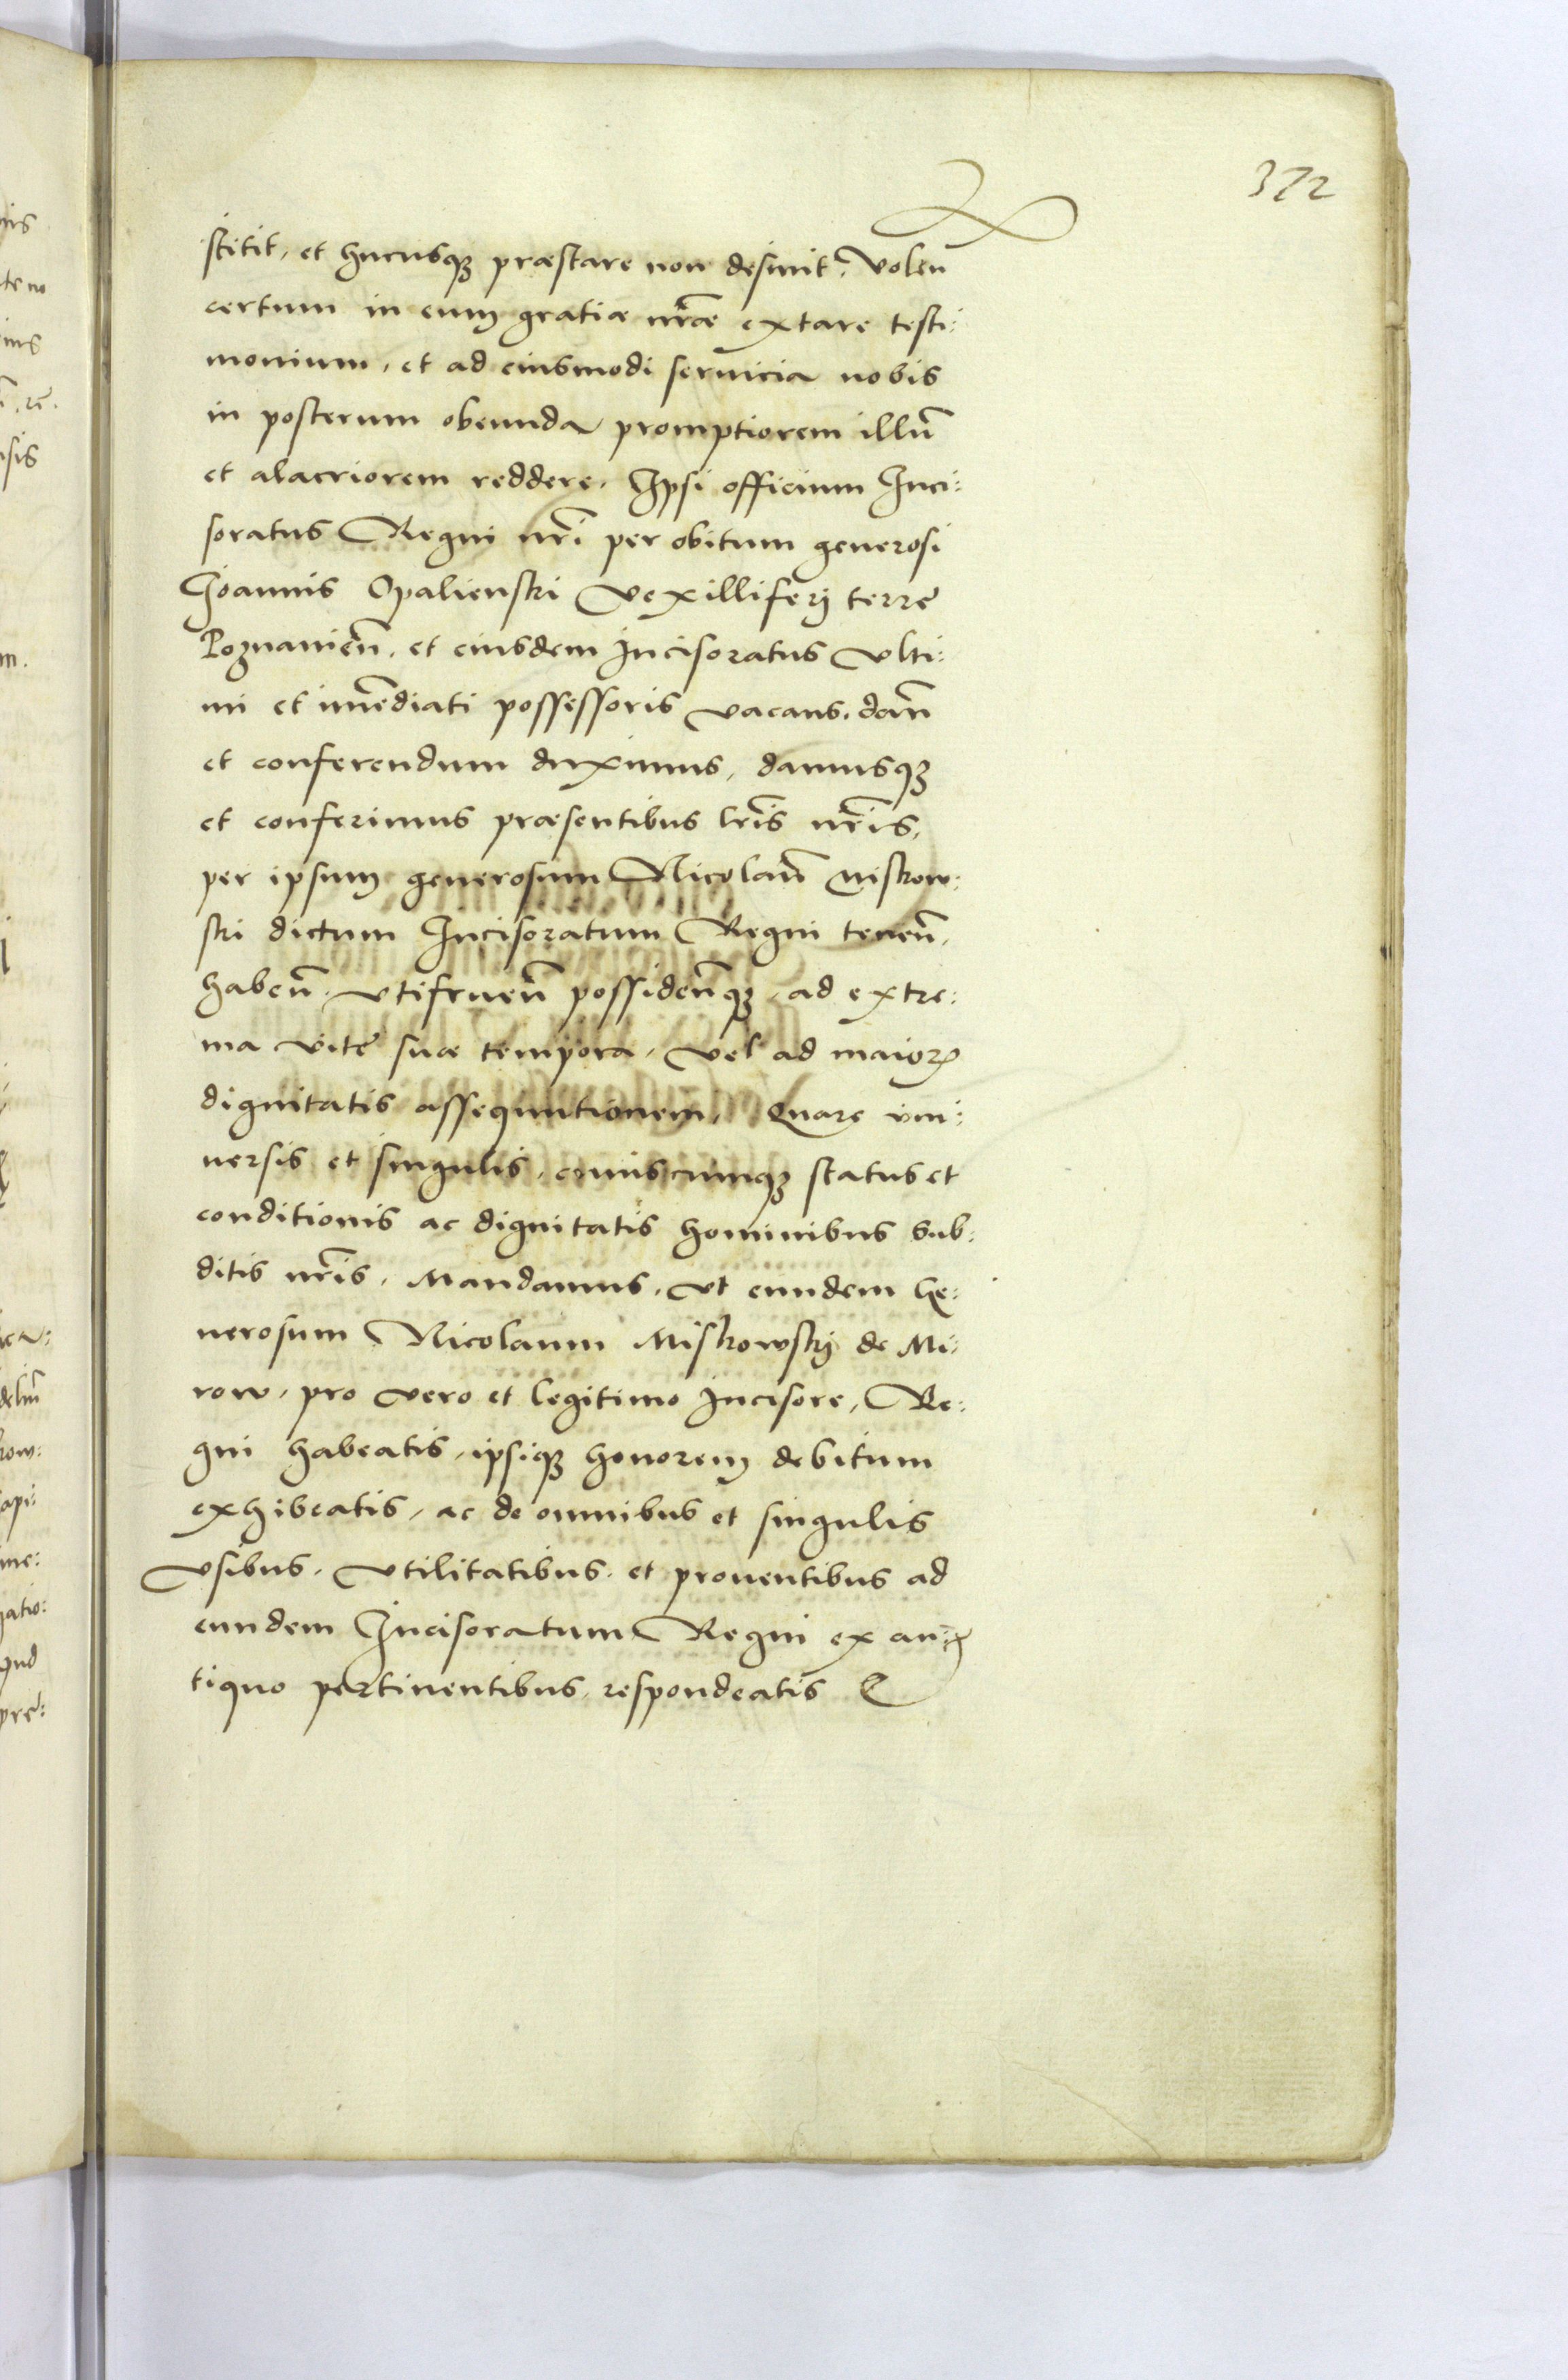 372
stitit, et hucusq3 præstare non desinit. Volen̄
certum in eum gratiæ nr̄æ extare testi:
monium, et ad eiusmodi seruicia nobis
in posterum obeunda promptiorem illū
et alacriorem reddere. Ipsi officium Inci:
soratus Regni nr̄i per obitum generosi
Joannis Opalienski Vexilliferj terrę
Poznanien̄. et eiusdem Incisoratus vlti:
mi et im̄ediati possessoris vacans. dan̄
et conferendum duximus, damusq3
et conferimus præsentibus lr̄is nr̄is,
per ipsum generosum Nicolaū Miskow:
ski dictum Incisoratum Regni tenen̄.
haben̄. vtifruen̄ possiden̄q3, ad extre:
ma vitę suæ tempora, vel ad maioris
dignitatis assequutionem. Quare vni:
uersis et singulis, cuiuscumq3 status et
conditionis ac dignitatis hominibus Sub:
ditis nr̄is. Mandamus, vt eundem Ge:
nerosum Nicolaum Miskowskj de Mi:
row, pro vero et legitimo Incisore, Re:
gni habeatis, ipsiq3 honorem debitum
exhibeatis, ac de omnibus et singulis
vsibus, vtilitatibus, et prouentibus ad
eundem Incisoratum Regni ex an:
tiquo pertinentibus, respondeatis